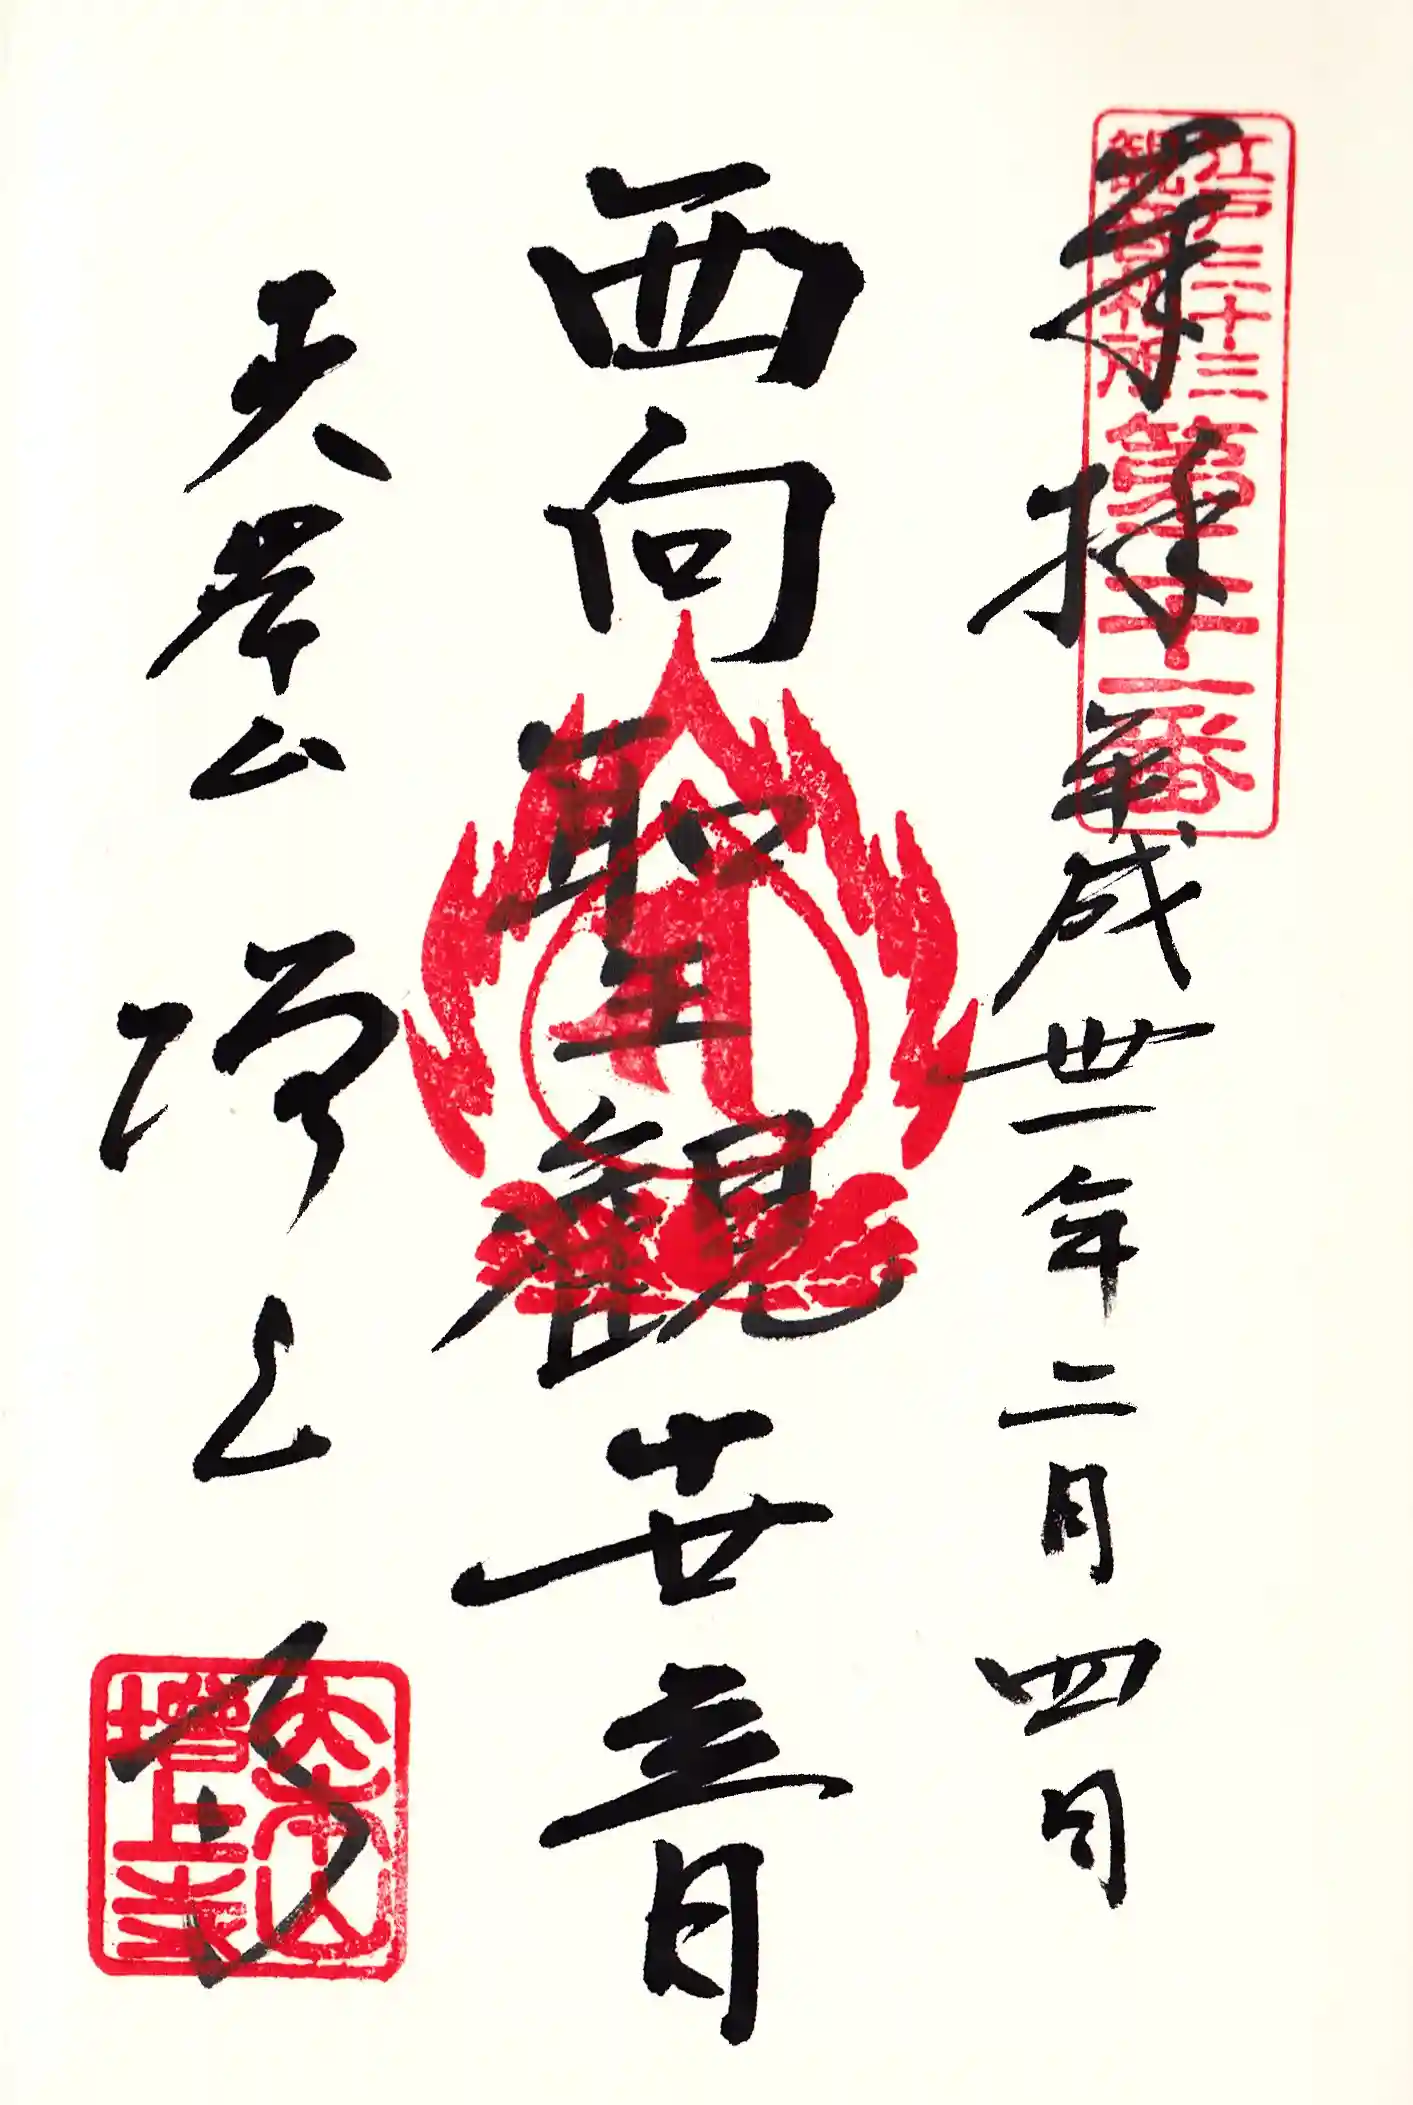 江戸三十三
観音札所
第二十一番
奉拝 平成卅一年二月四日
西向聖觀世音
大本山 増上寺
大本山
増上寺